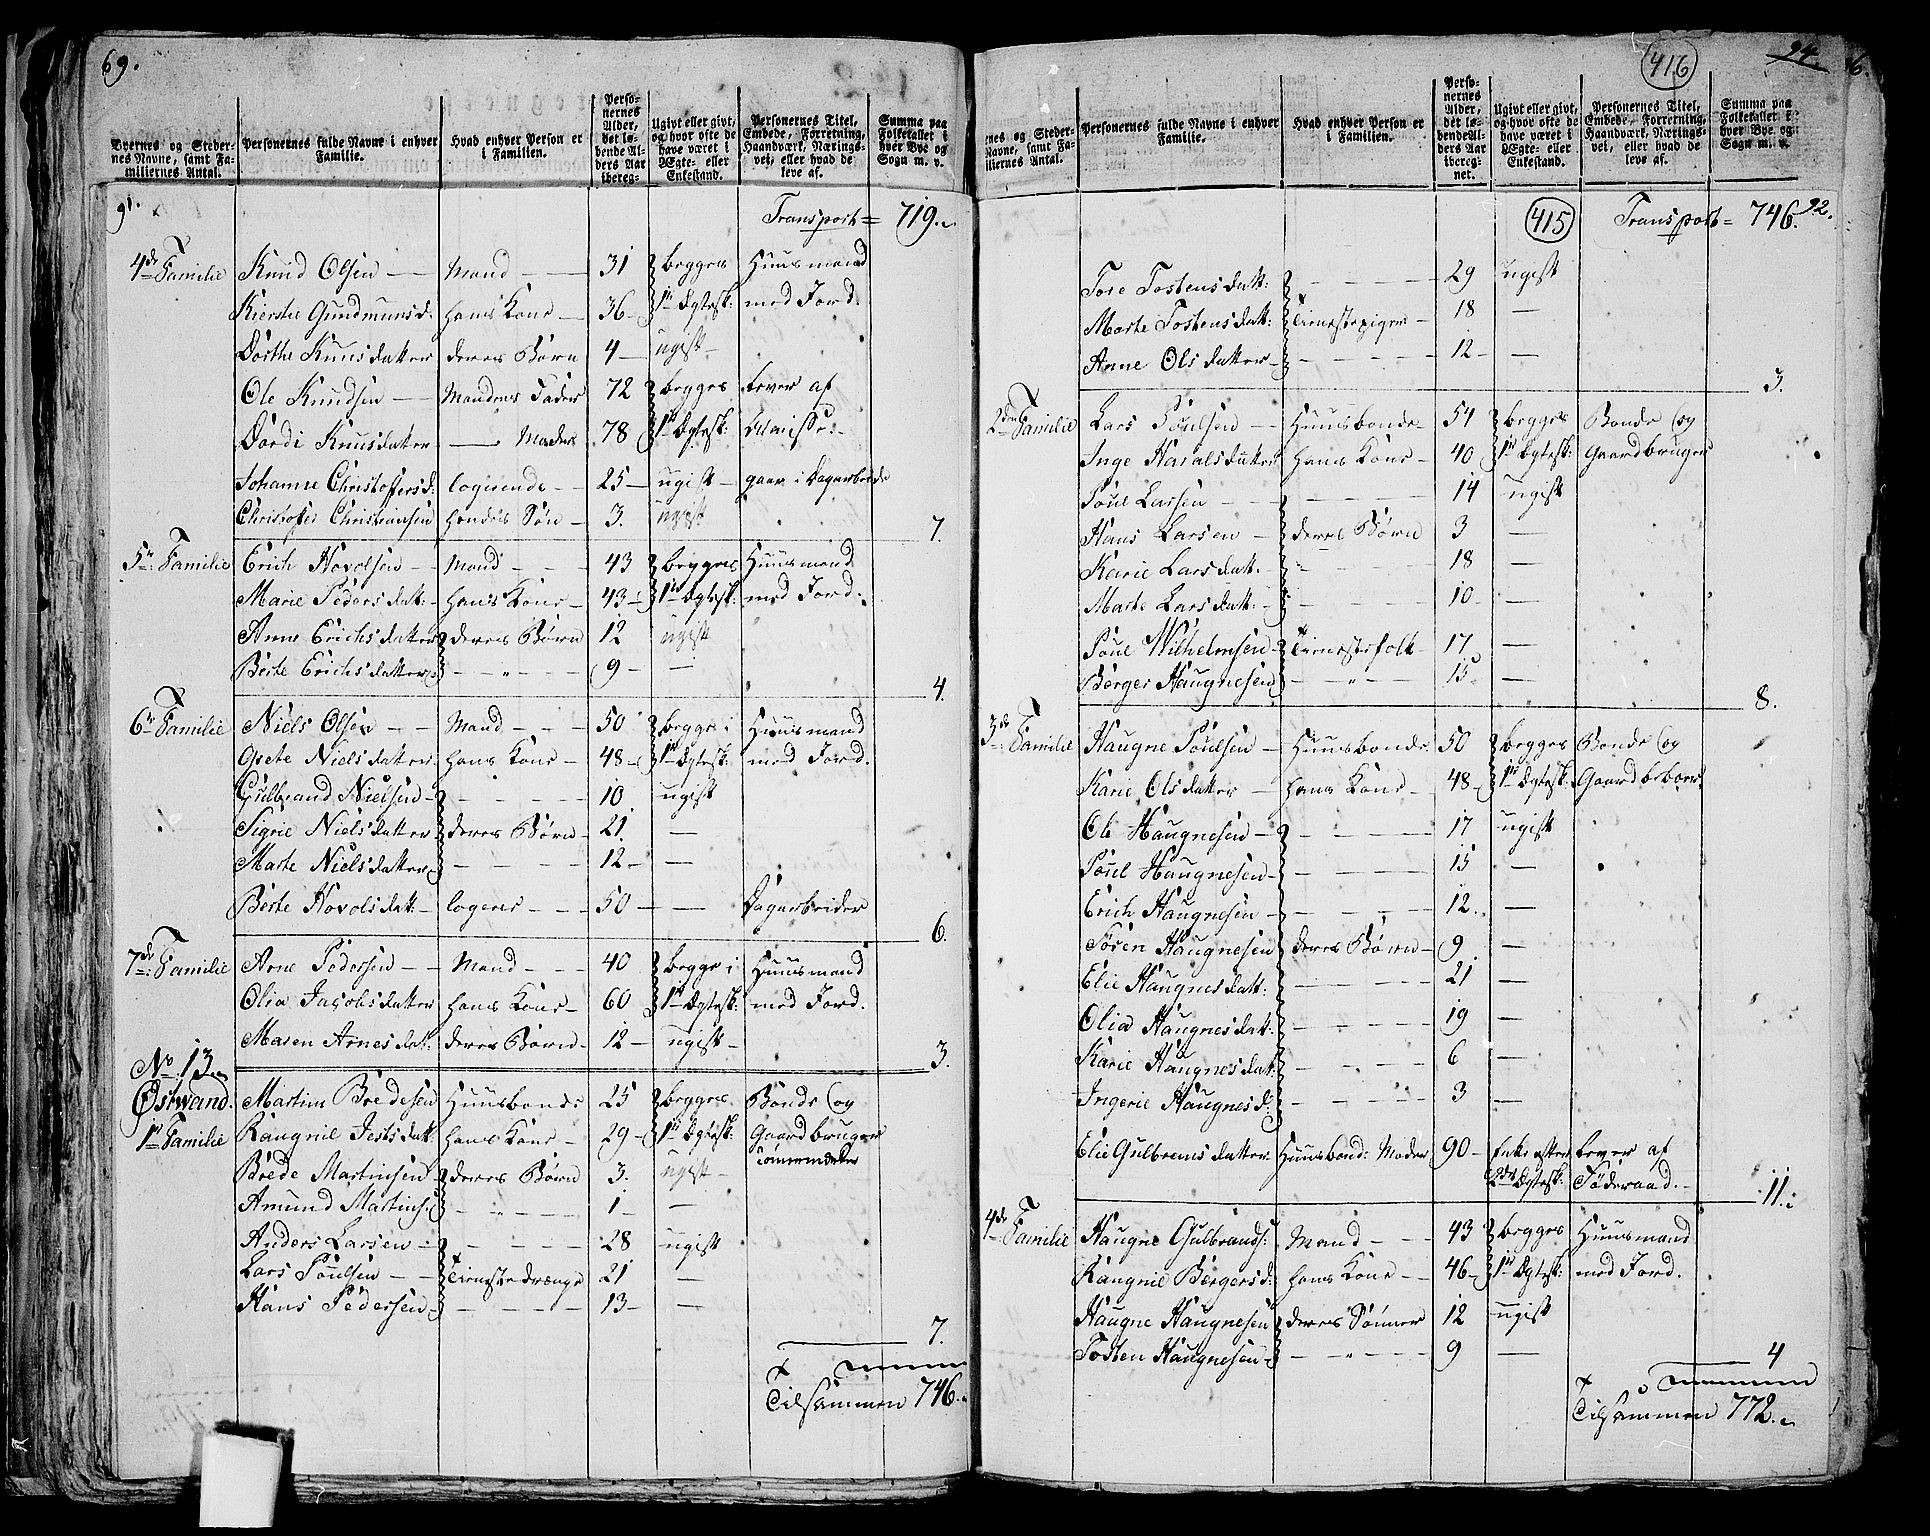 69.
Byernes og Stedernes Navne, samt Familiernes Antal.
Personernes fulde Navne i enhver Familie.
Hvad enhver Person er i Familien.
Personernes Alder, det løbende Alders Aar ibereg-
Ugivt eller givt, og hvor ofte de have været i Ægte- eller Enkestand.
Personernes Titel, Embede, Forretning, Haandværk, Næringsvei, eller hvad de leve af.
Summa paa Folketallet i hver Bye og Sogn m. v.
91. Transport = 719.
4de Familie Knud Olsen — Mand — 31 begges Huusmand
Kierstie Gundmunsd: hans Kone — 36 — 1ste Ægtesk: med Jord
Dorthe Knusdatter deres Børn 4 — ugift
Ole Knudsen — Mandens Fader 72 begges lever af
Dordi Knusdatter — Moder 78 1ste Ægtesk:
Johanne Christoffersd: logerende — 25 — ugift — gaar i Dagarbeide
Christoffer Christiansen hendes Søn — 3. ugift
7.
5te Familie Erich Hovolsen — Mand — 43 begges Huusmand
Marie Pedersdatt: hans Kone — 43 — 1ste Ægtesk: med Jord.
Anne Erichsdatter deres Børn 12 ugift
Berte Erichsdatter — " — 9 — —
4.
6te Familie Niels Olsen — Mand — 50 begge i Huusmand
Grete Nielsdatter hans Kone — 48 — 1ste Ægtesk: med Jord.
Gulbrand Nielsen — — 10 ugift
Sigrie Nielsdatter deres Børn — 21. —
Marte Nielsdatter — — 12 — —
Berte Hovolsdatt: — logerer — 50 — — Dagarbeider
6.
7de Familie Arne Pedersen — Mand — 40 begge i Huusmand
Olia Jacobsdatter hans Kone — 60 1ste Ægtesk: med Jord.
Maren Arnesdat: deres Børn — 12 — ugift —
3.
No. 13.
Østwand.
1ste Familie Martin Bredesen Huusbonde 25 begges Bonde og
Raugnil Jensdatt: hans Kone — 29 — 1ste Ægtesk: Gaardbruger
Brede Martinsen deres Børn 3. ugift —
Amund Martins: — " — 1 — —
Anders Larsen — — 28 ugift
Lars Poulsen — Tienestedrænge 21 —
Hans Pedersen — — 13 — —
7.
Tilsammen 746.
416
24. 6.
nes og Steder- Navne, samt Fa- iliernes Antal.
Personernes fulde Navne i enhver Familie.
Hvad enhver Person er i Familien.
Personernes Alder, det løbende Alders Aar iberegnet.
Ugivt eller givt, og hvor ofte de have været i Ægte- eller Enkestand.
Personernes Titel, Embede, Forretning, Haandværk, Næringsvei, eller hvad de leve af.
Summa paa Folketallet i hver Bye og Sogn m. v.
415 Transport = 746. 92.
Tore Tostensdatt: — 29 ugift
Marte Tostensdatt: Tienestepiger — 18 —
Anne Olsdatter — — 12 —
3.
2den Familie Lars Poulsen — Huusbonde 54 begges Bonde og
Inge Haralsdatter hans Kone — 40 1ste Ægtesk: Gaardbruger
Poul Larsen — — 14 ugift
Hans Larsen — deres Børn 3 —
Karie Larsdatt. — — 18 —
Marte Larsdatt: — — 10 —
Poul Wilhelmsen — Tienestefolk — 17 —
Børger Haugnesen — " — 15 —
8.
3de Familie Haugne Poulsen — Huusbonde 50 begges Bonde og
Karie Olsdatter — hans Kone — 48 — 1ste Ægtesk: Gaardbeboer
Ole Haugnesen — — 17 ugift
Poul Haugnesen — — 15 —
Erich Haugnesen — — 12. —
Søren Haugnesen deres Børn — 9 —
Elie Haugnesdatt: — 21 —
Olia Haugnesdat: — 19 —
Karie Haugnesdatt: — 6 —
Ingerie Haugnesd: — 3 —
Elie Gulbransdatter Huusbond: Moder 90 — Enke efter lever af
2det Ægtesk: Föderaad. —
11.
4de Familie Haugne Gulbrands: Mand — 43 begges Huusmand
Raugnil Børgersd: hans Kone — 46 — 1ste Ægtesk: med Jord.
Haugne Haugnesen deres Sønner 12 ugift
Tosten Haugnesen — " — 9 —
4
Tilsammen 772.